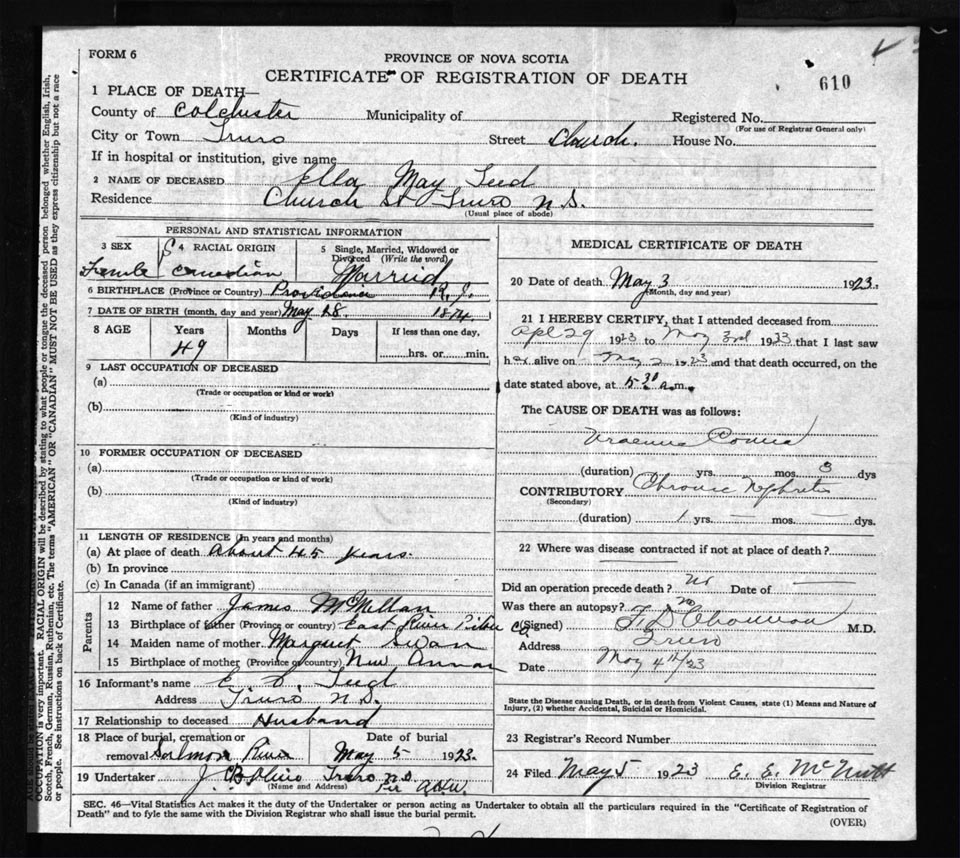 FORM 6
PROVINCE OF NOVA SCOTIA
CERTIFICATE OF REGISTRATION OF DEATH
610
1 PLACE OF DEATH—
County of Colchester Municipality of Registered No.
(For use of Registrar General only)
City or Town Truro Street Church. House No.
If in hospital or institution, give name
2 NAME OF DECEASED Ella May Teed
Residence Church St Truro N.S.
(Usual place of abode)
PERSONAL AND STATISTICAL INFORMATION
3 SEX 4 RACIAL ORIGIN 5 Single, Married, Widowed or Divorced (Write the word)
Female Canadian Married
6 BIRTHPLACE (Province or Country) Providence R.I.
7 DATE OF BIRTH (month, day and year) May 18 1874.
8 AGE Years Months Days If less than one day,
49 hrs. or min.
9 LAST OCCUPATION OF DECEASED
(a)
(Trade or occupation or kind or work)
(b)
(Kind of industry)
10 FORMER OCCUPATION OF DECEASED
(a)
(Trade or occupation or kind of work)
(b)
(Kind of industry)
11 LENGTH OF RESIDENCE (In years and months)
(a) At place of death About 45 years.
(b) In province
(c) In Canada (if an immigrant)
Parents
12 Name of father James McMellan
13 Birthplace of father (Province or country) East River Pictou Co
14 Maiden name of mother Margret Swan
15 Birthplace of mother (Province or country) New Annan
16 Informant's name E. Teed
Address Truro N.S.
17 Relationship to deceased Husband
18 Place of burial, cremation or removal Date of burial
Salmon River May 5 1923.
19 Undertaker J. Truro N.S.
(Name and Address) Per
MEDICAL CERTIFICATE OF DEATH
20 Date of death May 3 1923.
(Month, day and year)
21 I HEREBY CERTIFY, that I attended deceased from
Apl 29 1923 to May 3rd 1923 that I last saw
her alive on May 2 1923 and that death occurred, on the
date stated above, at 5 30 a.m.
The CAUSE OF DEATH was as follows:
Uraemic Coma
(duration) yrs. mos. 3 dys
CONTRIBUTORY Chronic Nephritis
(Secondary)
(duration) 1 yrs. — mos. — dys.
22 Where was disease contracted if not at place of death?
Did an operation precede death? no Date of —
Was there an autopsy? no
(Signed) M.D.
Address Truro
Date May 4th/23
State the Disease causing Death, or in death from Violent Causes, state (1) Means and Nature of
Injury, (2) whether Accidental, Suicidal or Homicidal.
23 Registrar's Record Number
24 Filed May 5 1923 E. E. McNutt
Division Registrar
SEC. 46—Vital Statistics Act makes it the duty of the Undertaker or person acting as Undertaker to obtain all the particulars required in the "Certificate of Registration of
Death" and to fyle the same with the Division Registrar who shall issue the burial permit.
(OVER)
OCCUPATION is very important. RACIAL ORIGIN will be described by stating to what people or tongue the deceased person belonged whether English, Irish,
Scotch, French, German, Russian, Ruthenian, etc. The terms "AMERICAN" OR "CANADIAN" MUST NOT BE USED as they express citizenship but not a race
or people. See instructions on back of Certificate.